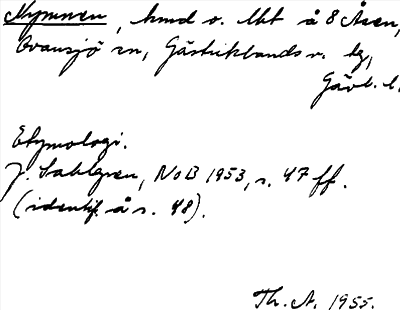 Nymnen, hmd o. lht å 8 Åsen,
Ovansjö sn, Gästriklands v. tg,
Gävl. l.
Etymologi.
J. Sahlgren, NoB 1953, s. 47 ff.
(identif. å s. 48).
Th. A. 1955.